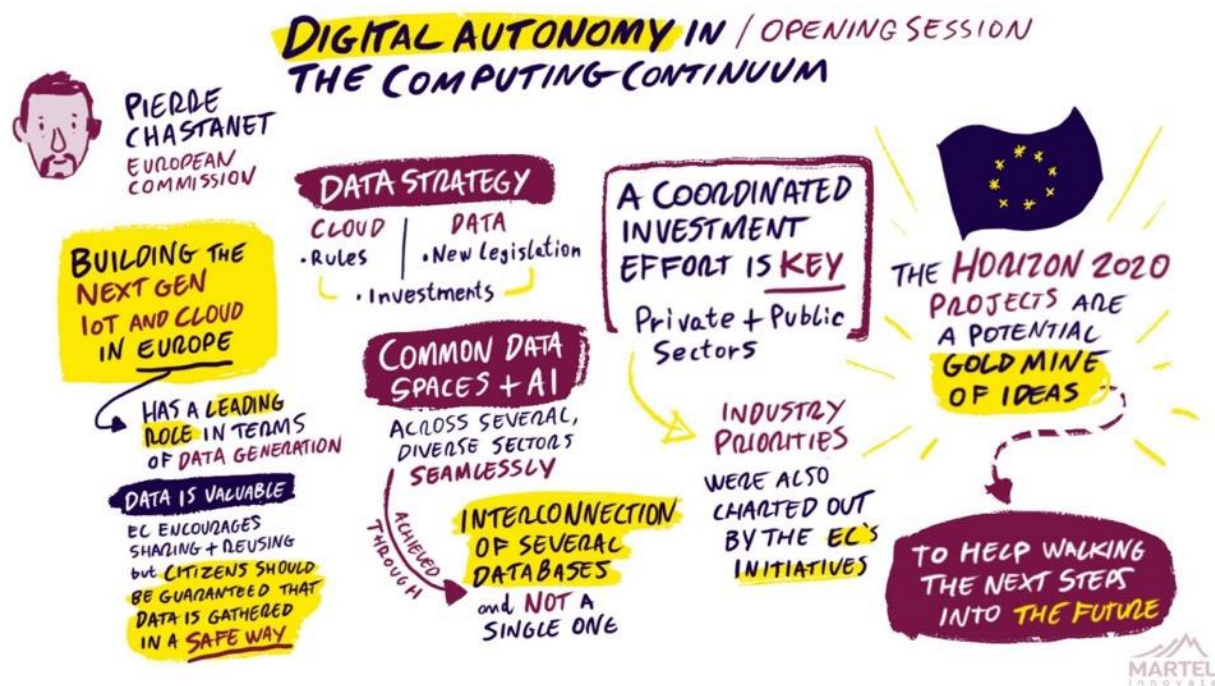 DIGITAL AUTONOMY IN / OPENING SESSION
THE COMPUTING CONTINUUM
PIERRE
CHASTANET
EUROPEAN
COMMISSION
BUILDING THE
NEXT GEN
IoT AND CLOUD
IN EUROPE
HAS A LEADING
ROLE IN TERMS
OF DATA GENERATION
DATA IS VALUABLE
EC ENCOURAGES
SHARING + REUSING
but CITIZENS SHOULD
BE GUARANTEED THAT
DATA IS GATHERED
IN A SAFE WAY
DATA STRATEGY
CLOUD
• Rules
DATA
• New legislation
• Investments
COMMON DATA
SPACES + AI
ACROSS SEVERAL,
DIVERSE SECTORS
SEAMLESSLY
ACHIEVED
THROUGH
INTERCONNECTION
OF SEVERAL
DATABASES
and NOT A
SINGLE ONE
A COORDINATED
INVESTMENT
EFFORT IS KEY
Private + Public
Sectors
INDUSTRY
PRIORITIES
WERE ALSO
CHARTED OUT
BY THE EC's
INITIATIVES
THE HORIZON 2020
PROJECTS ARE
A POTENTIAL
GOLD MINE
OF IDEAS
TO HELP WALKING
THE NEXT STEPS
INTO THE FUTURE
MARTEL
innovate